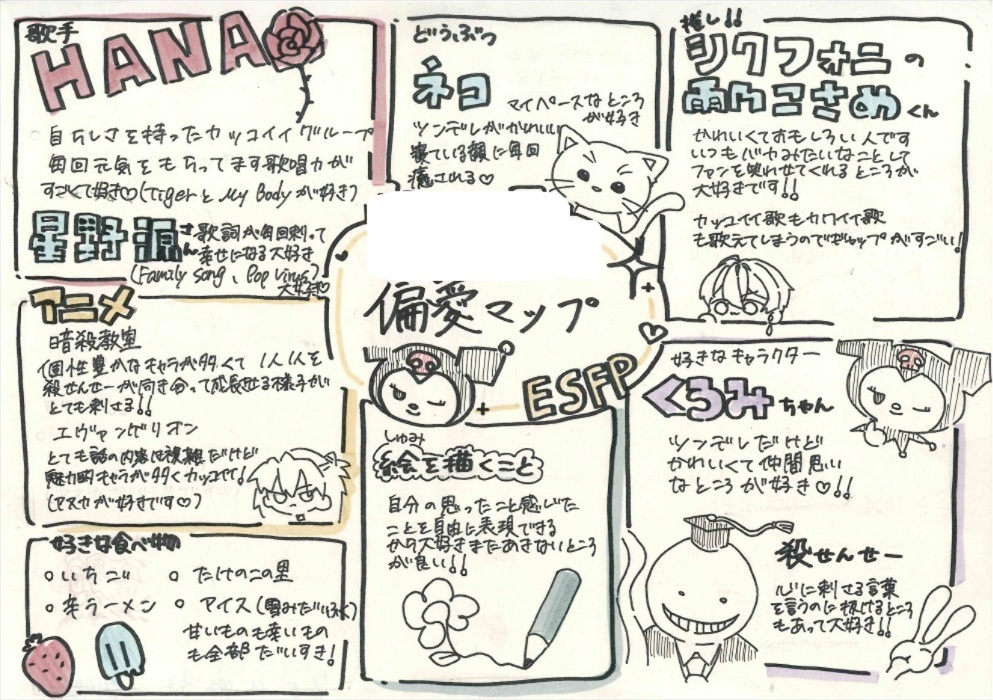 歌手
HANA
自分らしさを持ったカッコイイグループ
毎回元気をもらってます歌唱力が
すごくて好き♡(TigerとMy Bodyが好き)
星野源さん
歌詞が毎回刺って
幸せになる大好き
(Family Song、Pop Virus)
大好き♡
どうぶつ
ネコ
マイペースなところ
が好き
ツンデレがかわいい
寝ている顔に毎回
癒される♡
推し!!
シクフォニの
雨乃こさめくん
かわいくておもしろい人です
いつもバカみたいなことして
ファンを笑わせてくれるところが
大好きです!!
カッコイイ歌もカワイイ歌
も歌えてしまうのでギャップがすごい!
偏愛マップ
ESFP
アニメ
暗殺教室
個性豊かなキャラが多くて 1人1人を
殺せんせーが向き合って成長せる様子が
とても刺さる!!
エヴァンゲリオン
とても話の内容は複雑だけど
魅力的キャラが多くカッコイイ!
(アスカが好きです♡)
しゅみ
絵を描くこと
自分の思ったこと感じた
ことを自由に表現できる
から大好きまたあきないところ
が良い!!
好きなキャラクター
くろみちゃん
ツンデレだけど
かわいくて仲間思い
なところが好き♡!!
殺せんせー
心に刺さる言葉
を言うのに抜けるところ
もあって大好き!!
好きな食べ物
○いちご ○たけのこの里
○辛ラーメン ○アイス(雪みだいふく)
甘いものも辛いもの
も全部だいすき!